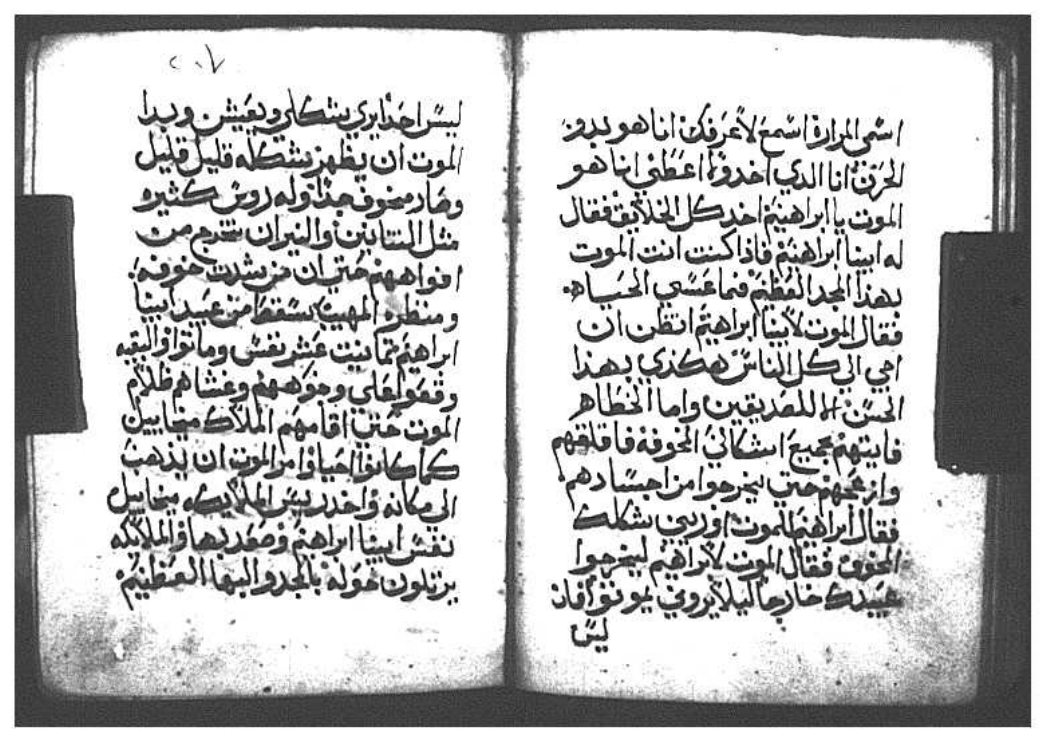 اسمي المرارة اسمع لاعرفك انا هو بدو
الحزن انا الدي اخدوة اعطي انا هو
الموت يا ابراهيم اخد كل الخلايق فقال
له ابينا ابراهيم فاذا كنت انت الموت
بهذا المجد العظيم فما عسي الحياه
فقال الموت لابينا ابراهيم اتظن ان
اجي الي كل الناس هكدي بهذا
الحسن الا للصديقين واما الخطاه
فاتيتهم بجميع اشكالي المخوفة فاقلقهم
وازعجهم حتي يخرجوا من اجسادهم
فقال ابراهيم للموت اوريني شكلك
المخوف فقال الموت لابراهيم ليخرجوا
عبيدك خارجا ليلا يروني يموتوا فان
ليس
٢٠٧
ليس احد ايري شكلي ويعيش وبدا
الموت ان يظهر شكله قليل قليل
وصار مخوف جدا وله روس كثيره
مثل التنانين والنيران تخرج من
افواههم حتي ان من شدت خوفه
ومنظره المهيب سقط من عبيد ابينا
ابراهيم ثمانيت عشر نفس وماتوا والبقيه
وقعوا علي وجوههم وغشاهم ظلام
الموت حتي اقامهم الملاك ميخاييل
كما كانوا احيا وامر الموت ان يذهب
الي مكانه واخد ريس الملايكه ميخاييل
نفس ابينا ابراهيم وصعد بها والملايكه
يرتلون حوله بالمجد والبها العظيم